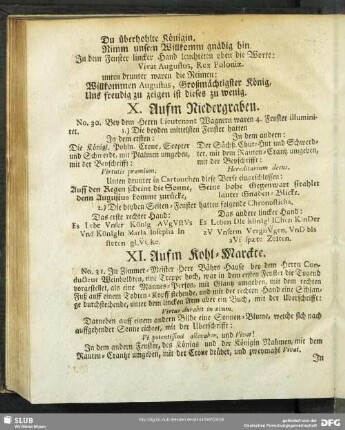 Du überhohlte Königin,
Nimm unsern Willkomm gnädig hin.
In dem Fenster lincker Hand leuchteten oben die Worte:
Vivat Augustus, Rex Poloniæ.
unten drunter waren die Reimen:
Willkommen Augustus, Großmächtigster König,
Uns freudig zu zeigen ist dieses zu wenig.
X. Aufm Niedergraben.
No. 30. Bey dem Herrn Lieutenant Wagnern waren 4. Fenster illumini-
ret. 1.) Die beyden mittelsten Fenster hatten
In dem ersten:
Die Königl. Pohln. Crone, Scepter
und Schwerdt, mit Palmen umgeben,
mit der Beyschrifft:
Virtutis præmium;
In dem andern:
Der Sächß. Chur-Hut und Schwerd-
ter, mit dem Rauten-Crantz umgeben,
mit der Beyschrifft:
Hereditarium decus.
Unten drunter in Cartouchen diese Verse
Auf den Regen scheint die Sonne,
denn Augustus kommt zurücke,
Seine hohe Gegenwart strahlet
lauter Gnaden-Blicke.
2.) Die beyden Seiten-Fenster hatten folgende Chronosticha,
Das erste rechter Hand:
Es Lebe Vnser König AVgVstVs
VnD Königin MarIa Iosepha In
steten gLVcke.
Das andere lincker Hand:
Es Leben DIe königLIChen KInDer
zV Vnserm VergnVgen, VnD bIs
zVr spate Zeiten.
XI. Aufm Kohl-Marckte.
No. 31. In Zimmer-Meister Herr Bährs Hause bey dem Herrn Con-
ducteur Weinholdten, eine Treppe hoch, war in dem ersten Fenster die Tugend
vorgestellet, als eine Mannes-Person, mit Glantz umgeben, mit dem rechten
Fuß auf einem Todten-Kopff stehende, und mit der rechten Hand eine Schlan-
ge durchstechende, unter dem lincken Arm aber ein Buch, mit der Überschrifft:
Virtus durabit in ævum.
Darneben auff einem andern Bilde eine Sonnen-Blume, welche sich nach
auffgehender Sonne richtet, mit der Überschrifft:
Vi potentissimi allevabor, und Vivat!
In dem andern Fenster, des Königs und der Königin Nahmen, mit dem
Rauten-Crantze umgeben, mit der Crone drüber, und zweymahl Vivat.
In
SLUB
Wir führen Wissen.
gefördert von der
Deutschen Forschungsgemeinschaft
DFG